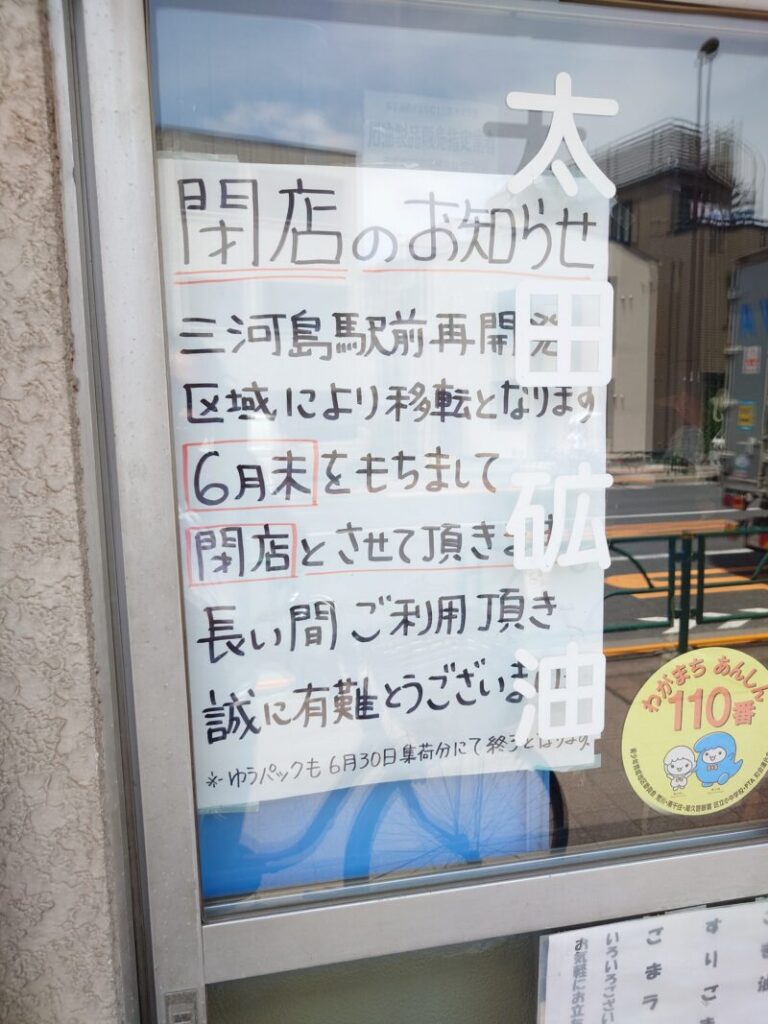 太田砿油
閉店のお知らせ
三河島駅前再開発
区域により移転となります
6月末をもちまして
閉店とさせて頂きます
長い間ご利用頂き
誠に有難とうございました
※ゆうパックも6月30日集荷分にて終了となります
わがまち あんしん
110番
すりごま
ごまラ
いろいろござい
お気軽にお立ち